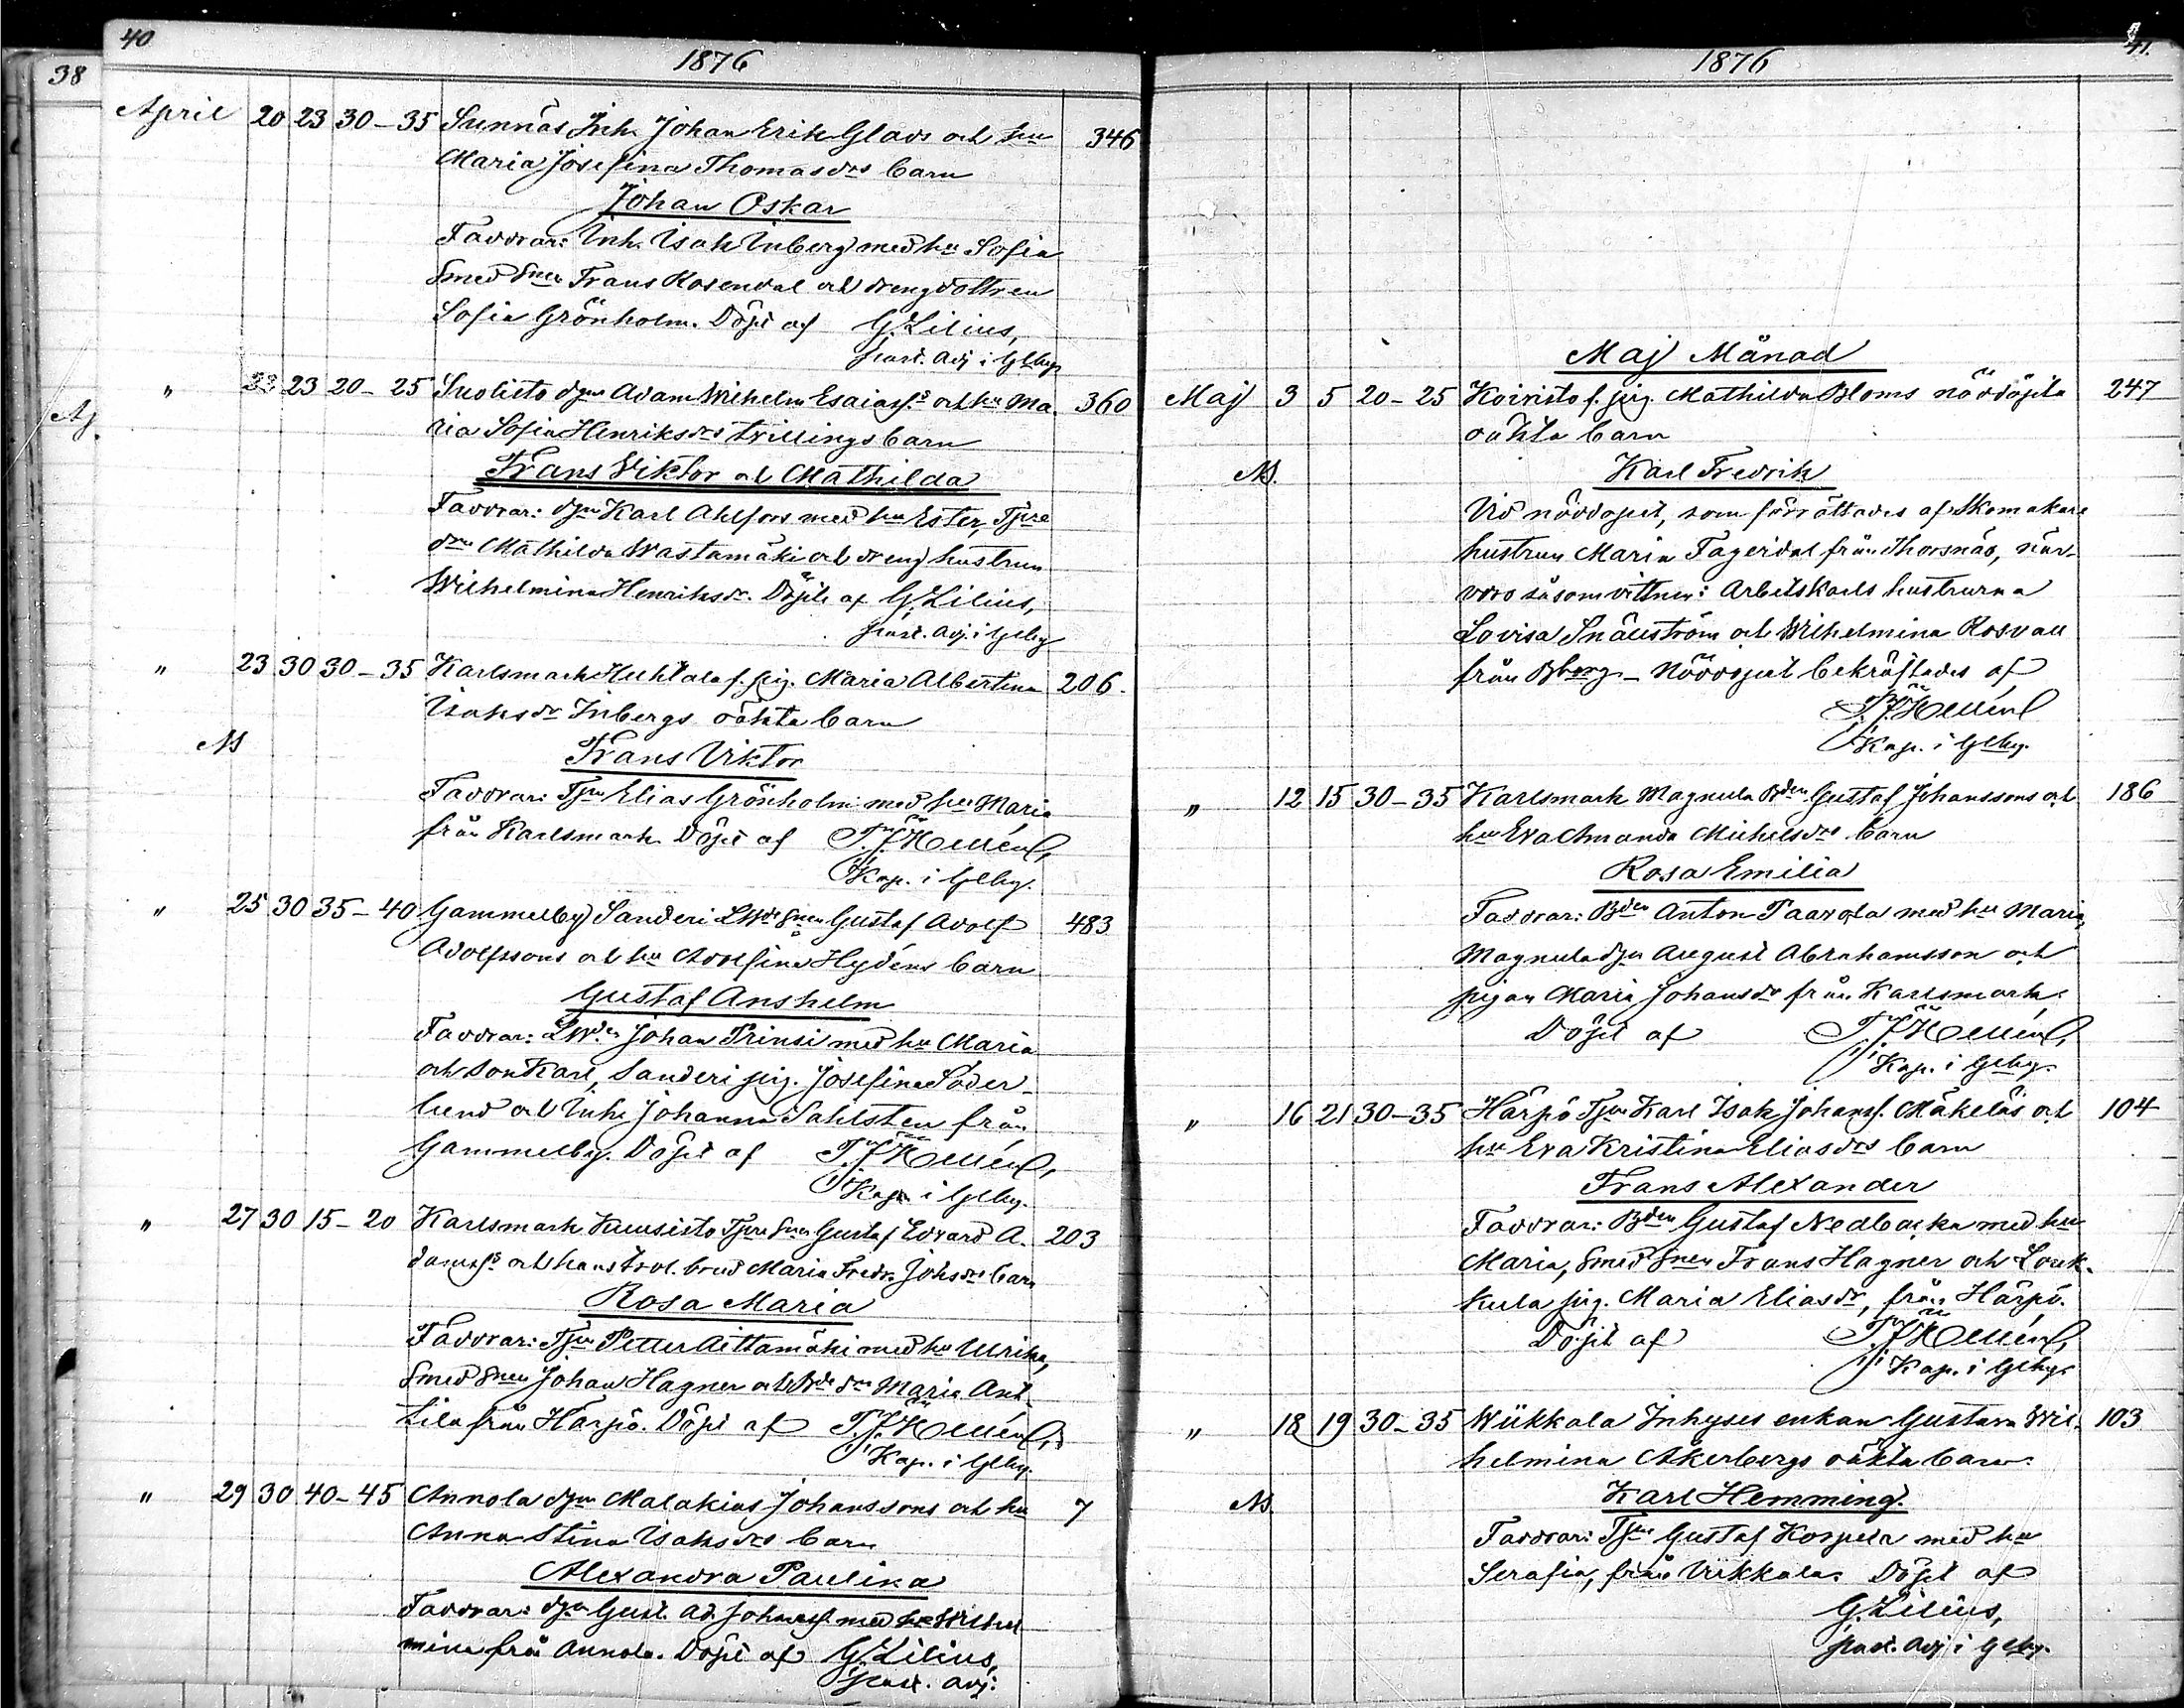 40
1876
38
April 20 23 30–35 Sunnäs Inh. Johan Erik Glads och hu 346
Maria Josefina Thomasdrs barn
Johan Oskar
Faddrar: Inh. Isak Inberg med hu Sofia
Smed Snen Frans Rosendal och drengdottren
Sofia Grönholm. Döpt af G. Lilius,
past. adj i Gleby
" 23 23 20–25 Suolisto dgn Adam Wilhelm Esaiass. och hu Ma- 360
ria Sofia Henriksdrs tvillingsbarn
Frans Viktor och Mathilda
Faddrar: dgn Karl Ahlfors med hu Ester, Tjre
drn Mathilda Wastamäki och drenghustrun
Wilhelmina Henriksdr. Döpte af G. Lilius,
past. adj. i Gleby
" 23 30 30–35 Karlsmark Huhtala f. pig. Maria Albertina 206.
Isaksdr Inbergs oäkta barn
Frans Viktor
Faddrar: Tjn Elias Grönholm med hu Maria
från Karlsmark. Döpt af
Kap. i Gleby.
" 25 30 35–40 Gammelby Sanderi Gustaf Adolf 483
Adolfssons och hu Adolfina Hydéns barn
Gustaf Anshelm
Faddrar: Johan Prinsi med hu Maria
och son Karl, Sanderi pig. Josefina Söder-
lund och Inh. Johanna Sahlsten från
Gammelby. Döpt af
Kap. i Gleby.
" 27 30 15–20 Karlsmark Kuusisto Tjre Snen Gustaf Edvard A- 203
damss. och hans trol. brud Maria Fredr. Johsdrs barn
Rosa Maria
Faddrar: Tjn Petter Aittamäki med hu Ulrika,
Smed Snen Johan Hagner och Bde drn Maria Ant-
tila från Härpö. Döpt af
Kap. i Gleby.
" 29 30 40–45 Annola dgn Malakias Johanssons och hu 7
Anna Stina Isaksdrs barn
Alexandra Paulina
Faddrar: dgn Gust. Ad. Johanss. med hu Wilhel
mina från Annola. Döpt af G. Lilius,
past. adj.
41.
1876
Maj Månad
Maj 3 5 20–25 Koivisto f. pig. Mathilda Bloms nöddöpta 247
oäkta barn
Karl Fredrik
Vid nöddopet, som förrättades af Skomakare
hustrun Maria Fagerdal från Thorsnäs, när-
voro såsom vittnen: Arbetskarls hustrurna
Lovisa Snällström och Wilhelmina Rosvall
från Bborg – Nöddopet bekräftades af
Kap. i Gleby.
" 12 15 30–35 Karlsmark Magnula Bden Gustaf Johanssons och 186
hu Eva Amanda Michelsdrs barn
Rosa Emilia
Faddrar: Bden Anton Paavola med hu Maria,
Magnula dgn August Abrahamsson och
pigan Maria Johansdr från Karlsmark.
Döpt af
Kap. i Gleby.
" 16 21 30–35 Härpö Tjn Karl Isak Johanss. Mäkeläs och 104
hu Eva Kristina Eliasdrs barn
Frans Alexander
Faddrar: Bden Gustaf Nedbacka med hu
Maria, Smed Snen Frans Hagner och Louk-
kula pig. Maria Eliasdr, från Härpö.
Döpt af
Kap. i Gleby.
" 18 19 30–35 Wiikkala Inhyses enkan Gustava Wil- 103
helmina Åkerbergs oäkta barn
Karl Hemming.
Faddrar: Tjn Gustaf Korpela med hu
Serafia, från Viikkala. Döpt af
G. Lilius,
past. adj i Gleby.